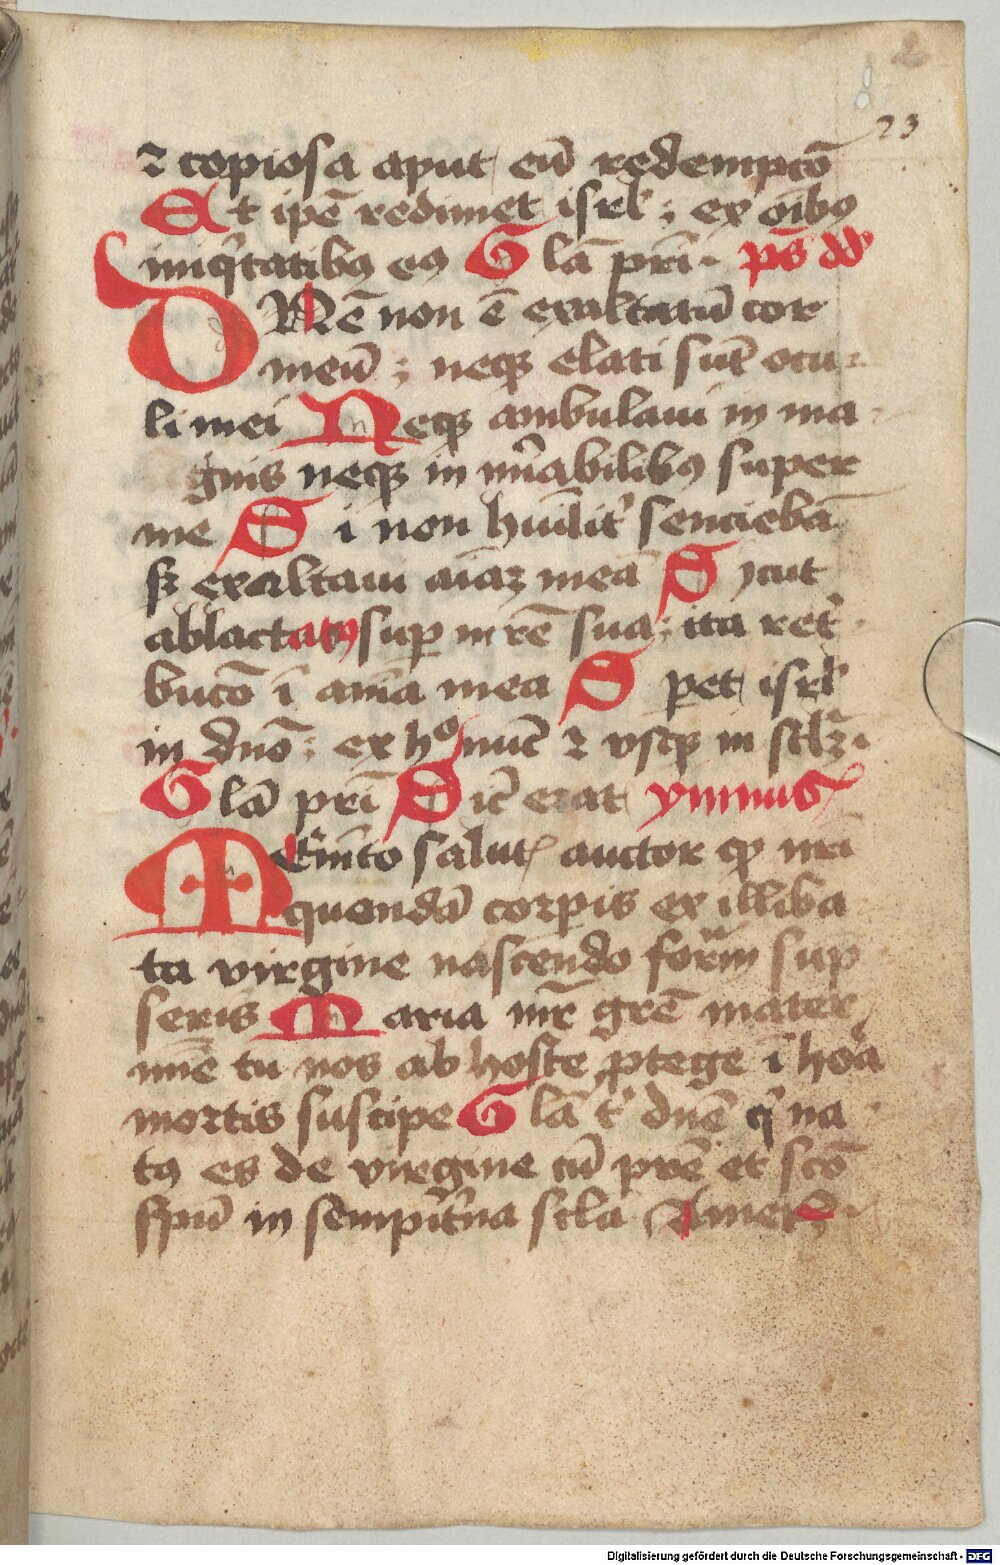 23
⁊ copiosa aput eū redempcō
Et ipē redimet isrl̓ ; ex oībꝯ
iniq̄tatibꝯ eꝯ Glā pri· ps̄ dd
DNē non ē exaltatū cor
meū ; neqꝫ elati sūt ocu
li mei Neqꝫ ambulaui in ma
gnis neqꝫ in mi̓abilibꝯ super
me Si non humilit̓ senciebā
sꝫ exaltaui aīaꝫ meā Sycut
ablactatꝯ sup mrē sua ; ita ret̓
bucō ī anīa mea Speret isrl̓
in dnō ; ex hº nūc ⁊ vsqꝫ in sclꝫ
Glā pri Sic̄ erat ymnus
Memēto salut̓ auctor qꝫ nri
quondā corpis ex illiba
ta virgine nascendo formā sup
seris Maria mr̄ grē mater
mīe tu nos ab hoste ꝓtege ī horā
mortis suscipe Glā t̓ dnē qͥ na
tꝯ es de virgine cū prē et scō
spū in sempit̓na scla Amen
Digitalisierung gefördert durch die Deutsche Forschungsgemeinschaft - DFG